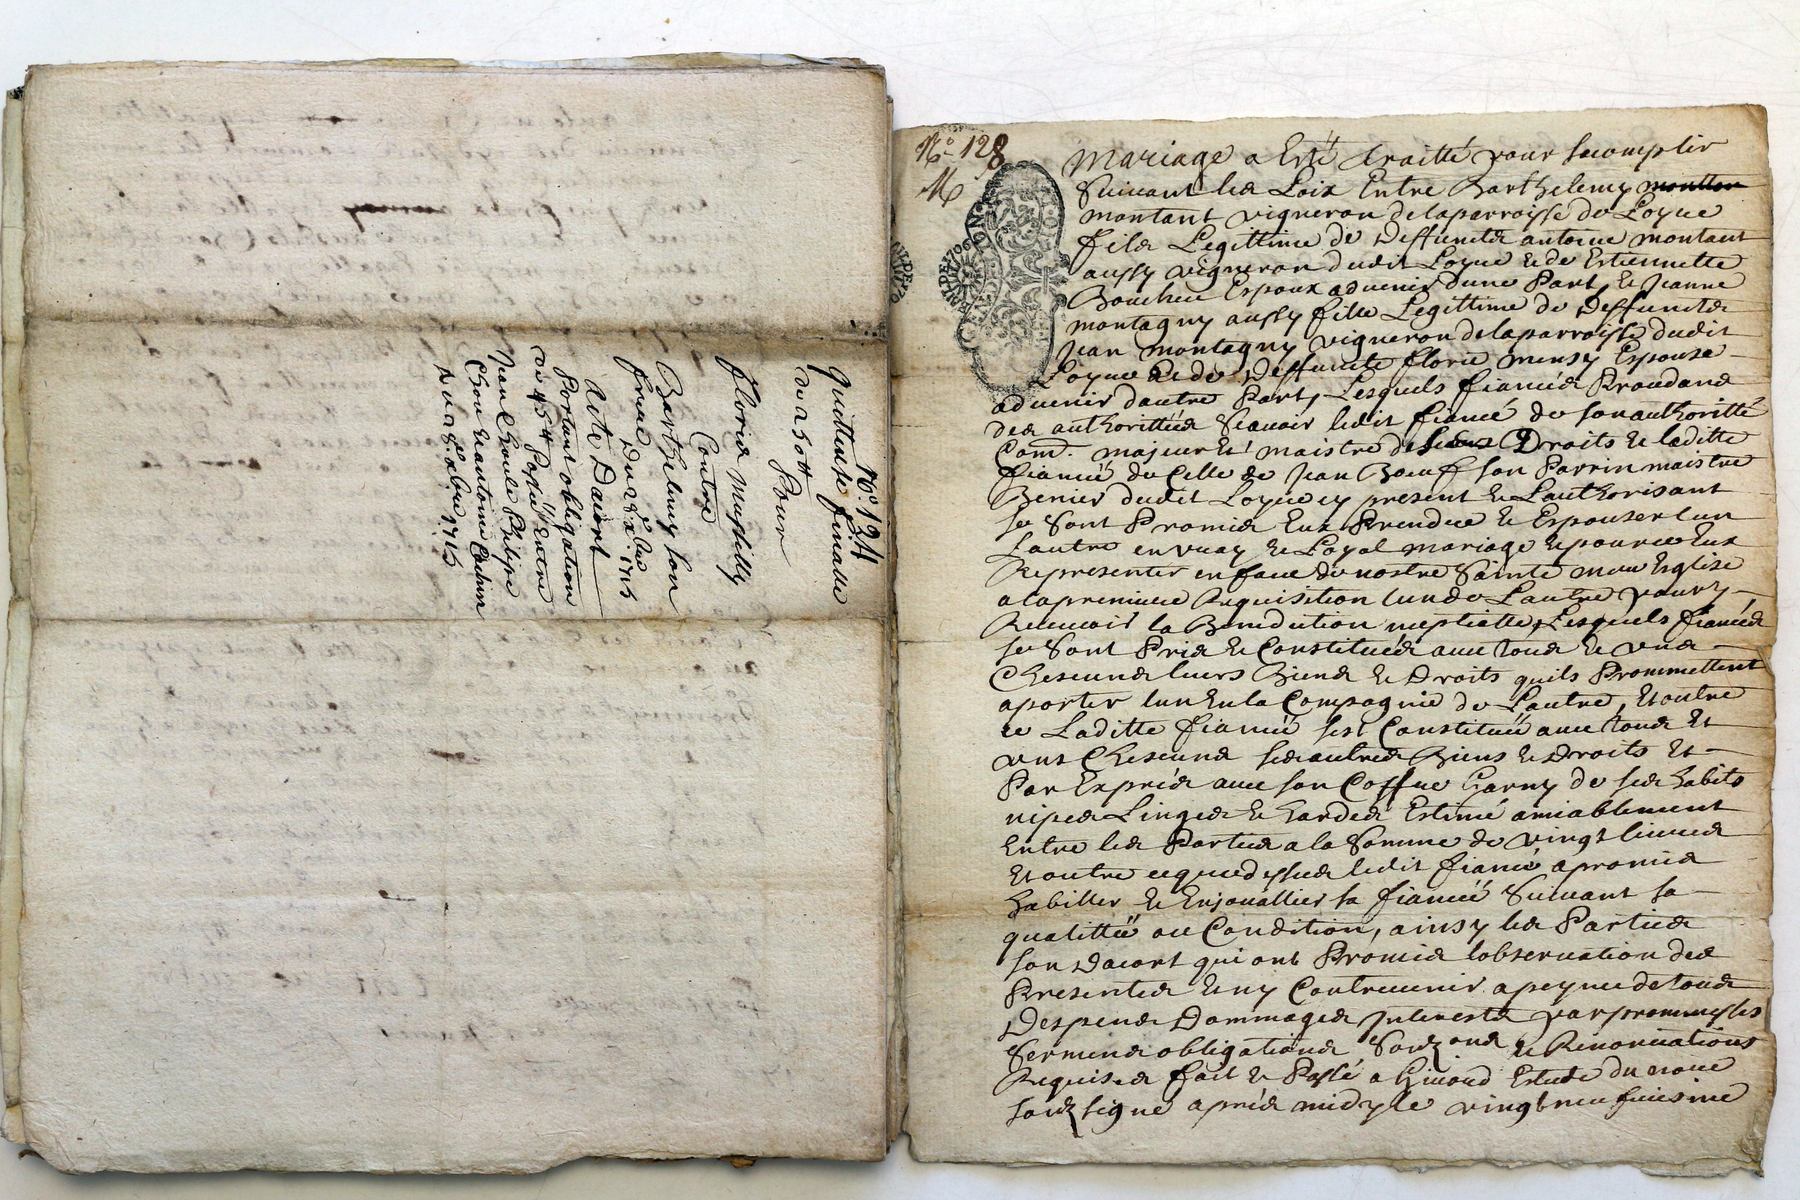 No. 124
quittense finalle
de 250tt
Pour
floris
Contre
Barthelemy son
frere Du 28e xbre 1715
Acte Dacort
Portant obligation
de 454tt Passé Entre
Jean Philipe
Chou Et antoine
Du 28e xbre 1715
No. 128
M
Mariage a Esté traitté pour Sacomplir
Suivant les Loix Entre Barthelemy
montant vigneron de la parroisse de Loyne
fils Legittime de deffuncts antoine montant
aussy vigneron dudit Loyne Et de Estiennette
Boucheu Espoux advenir dune Part, Et Jeanne
montagny aussy fille Legittime de Deffuncts
Jean montagny vigneron de la parroisse dudit
Loyne Et de Deffuncte florie Espouse
advenir dautre Part, Lesquels fiancés Procedans
des authorittés Scavoir ledit fiancé de son authoritté
Com. majeur Et maistre de ses Droits Et laditte
fiancée de Celle de Jean Boeuf son Parrin maistre
dudit Loyne cy present Et Lauthorisant
se Sont Promis Eux Prendre Et Espouser lun
Lautre en vray Et Loyal mariage Et pource Eux
Representer en face de nostre Sainte mere Eglise
a la premiere Requisition lun de Lautre pour y
Recevoir la Benediction nuptialle, Lesquels fiancés
se Sont Pris Et Constitués avec tous Et uns
Chescuns leurs Biens Et Droits quils Prommettent
aporter lun En la Compagnie de Lautre, Et outre
ce Laditte fiancée sest Constituée avec tous Et
uns Chescuns ses autres Biens Et Droits Et
Par Exprés avec son Coffre Garny de ses habits
nipes Linges Et hardes Estimé amiablement
Entre les Parties a la Somme de vingt livres
Et outre ce que dessus ledit fiancé a promis
habiller Et Enjouallier sa fiancée Suivant sa
qualittée ou Condition, ainsy les Parties
son Dacort qui ont Promis lobservation des
Presentes Et ny Contrevenir a peyne de tous
Despens Dommages Interests par promesses
Sermens obligations, Et Renonciations
Requises fait Et Passé a Givord Estude du no.re
souzsigné aprés midy le vingt neufuiesme